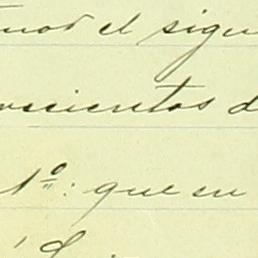 el sigu
scientos d
1º: que en